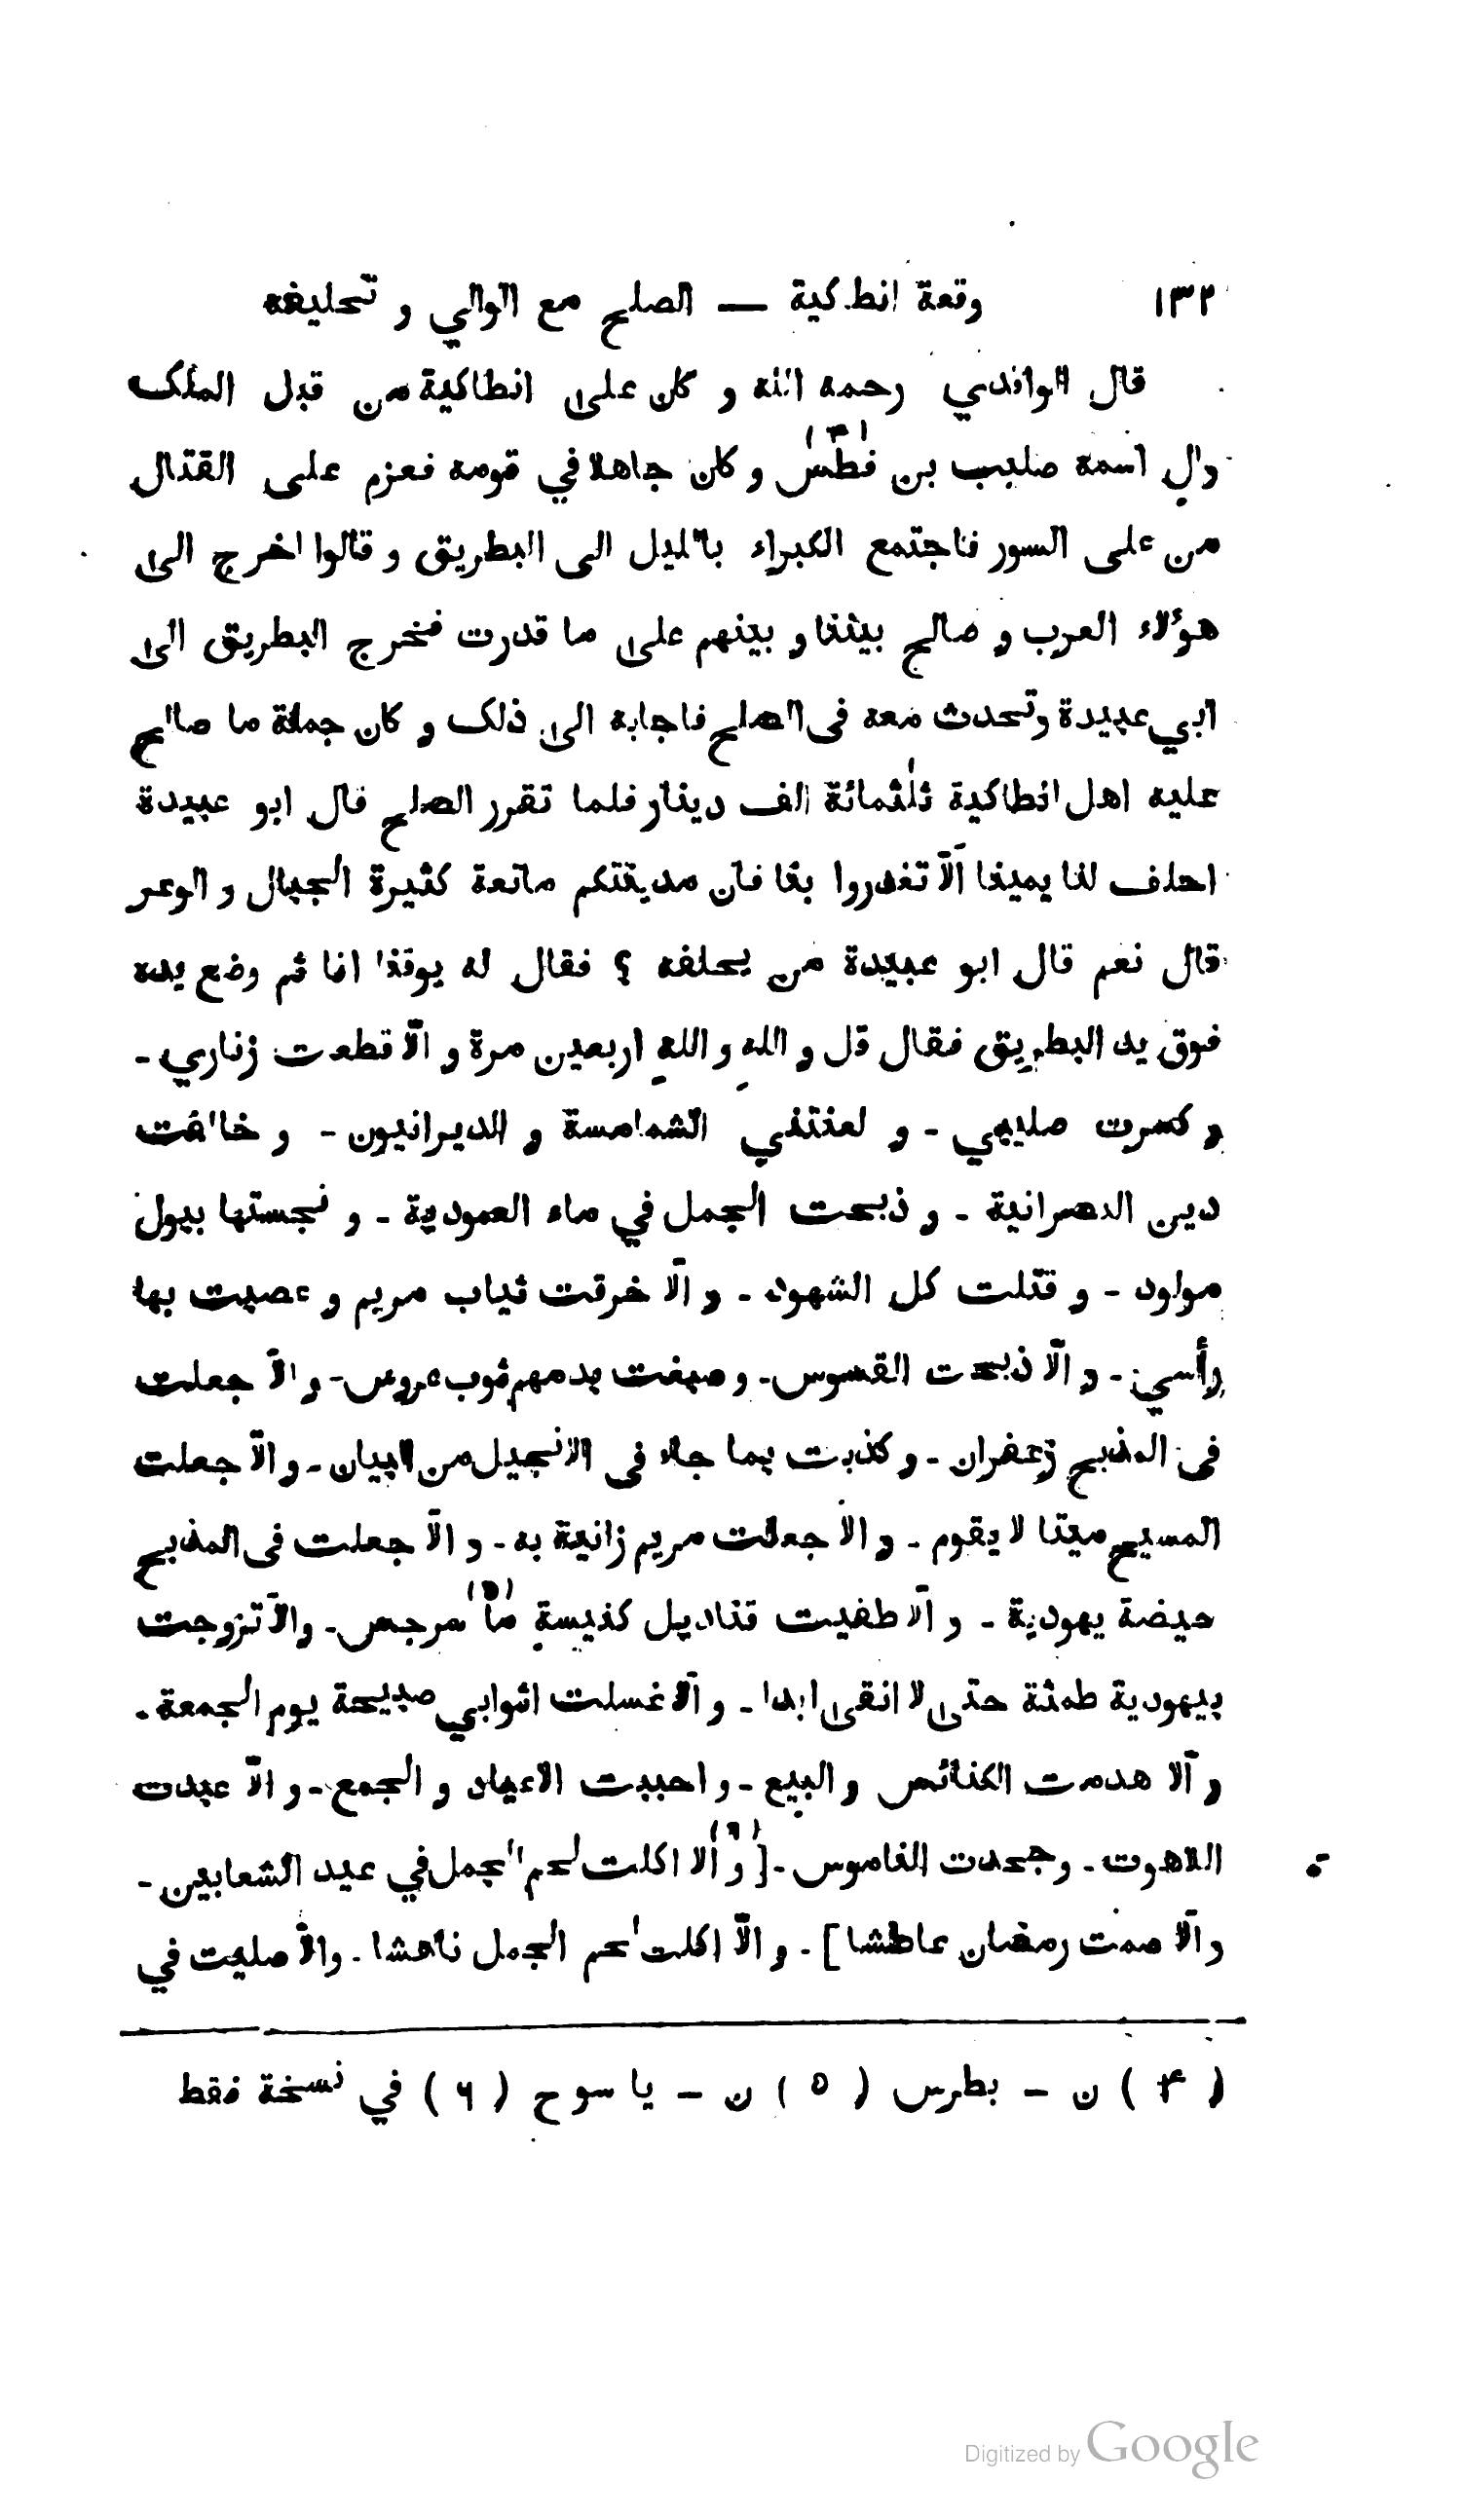 ١٣٢ وقعة انطاكية — الصلح مع الوالي و تحليفه
قال الواقدي رحمه الله و كان على انطاكية من قبل الملك
والٍ اسمه صليب بن فطس (۴) و كان جاهلا في قومه فعزم على القتال
من على السور فاجتمع الكبراء بالليل الى البطريق و قالوا اخرج الى
هؤلاء العرب و صالح بيننا و بينهم على ما قدرت فخرج البطريق الى
ابي عبيدة وتحدث معه فى الصلح فاجابه الى ذلك و كان جملة ما صالح
عليه اهل انطاكية ثلثمائة الف دينار فلما تقرر الصلح قال ابو عبيدة
احلف لنا يمينا ألّا تغدروا بنا فان مدينتكم مانعة كثيرة الجبال و الوعر
قال نعم قال ابو عبيدة من يحلفه ؟ فقال له يوقنا انا ثم وضع يده
فوق يد البطريق فقال قل و اللهِ و اللهِ اربعين مرة و الّا قطعت زناري -
و كسرت صليبي - و لعنتني الشمامسة و الديرانيون - و خالفت
دين النصرانية - و ذبحت الجمل في ماء العمودية - و نجستها ببول
مولود - و قتلت كل الشهود - و الّا خرقت ثياب مريم و عصبت بها
رأسي - و الّا ذبحت القسوس - و صبغت بدمهم ثوب عروس - و الّا جعلت
فى المذبح زعفران - و كذبت بما جاء فى الانجيل من البيان - و الّا جعلت
المسيح ميتا لا يقوم - و الّا جعلت مريم زانية به - و الّا جعلت فى المذبح
حيضة يهودية - و الّا طفيت قناديل كنيسةِ ما (٥) سرجس - والّا تزوجت
بيهودية طمثة حتى لا انقى ابدا - و الّا غسلت اثوابي صبيحة يوم الجمعة -
و الّا هدمت الكنائس و البيع - و احببت الاعياد و الجمع - و الّا عبدت
اللاهوت - و جحدت الناموس - [ (٦) و الّا اكلت لحم الجمل في عيد الشعانين -
والّا صمت رمضان عاطشا ] - و الّا اكلت لحم الجمل ناهشا - والّا صليت في
( ۴ ) ن - بطرس ( ٥ ) ن - يا سوح ( ٦ ) في نسخة فقط
Digitized by Google